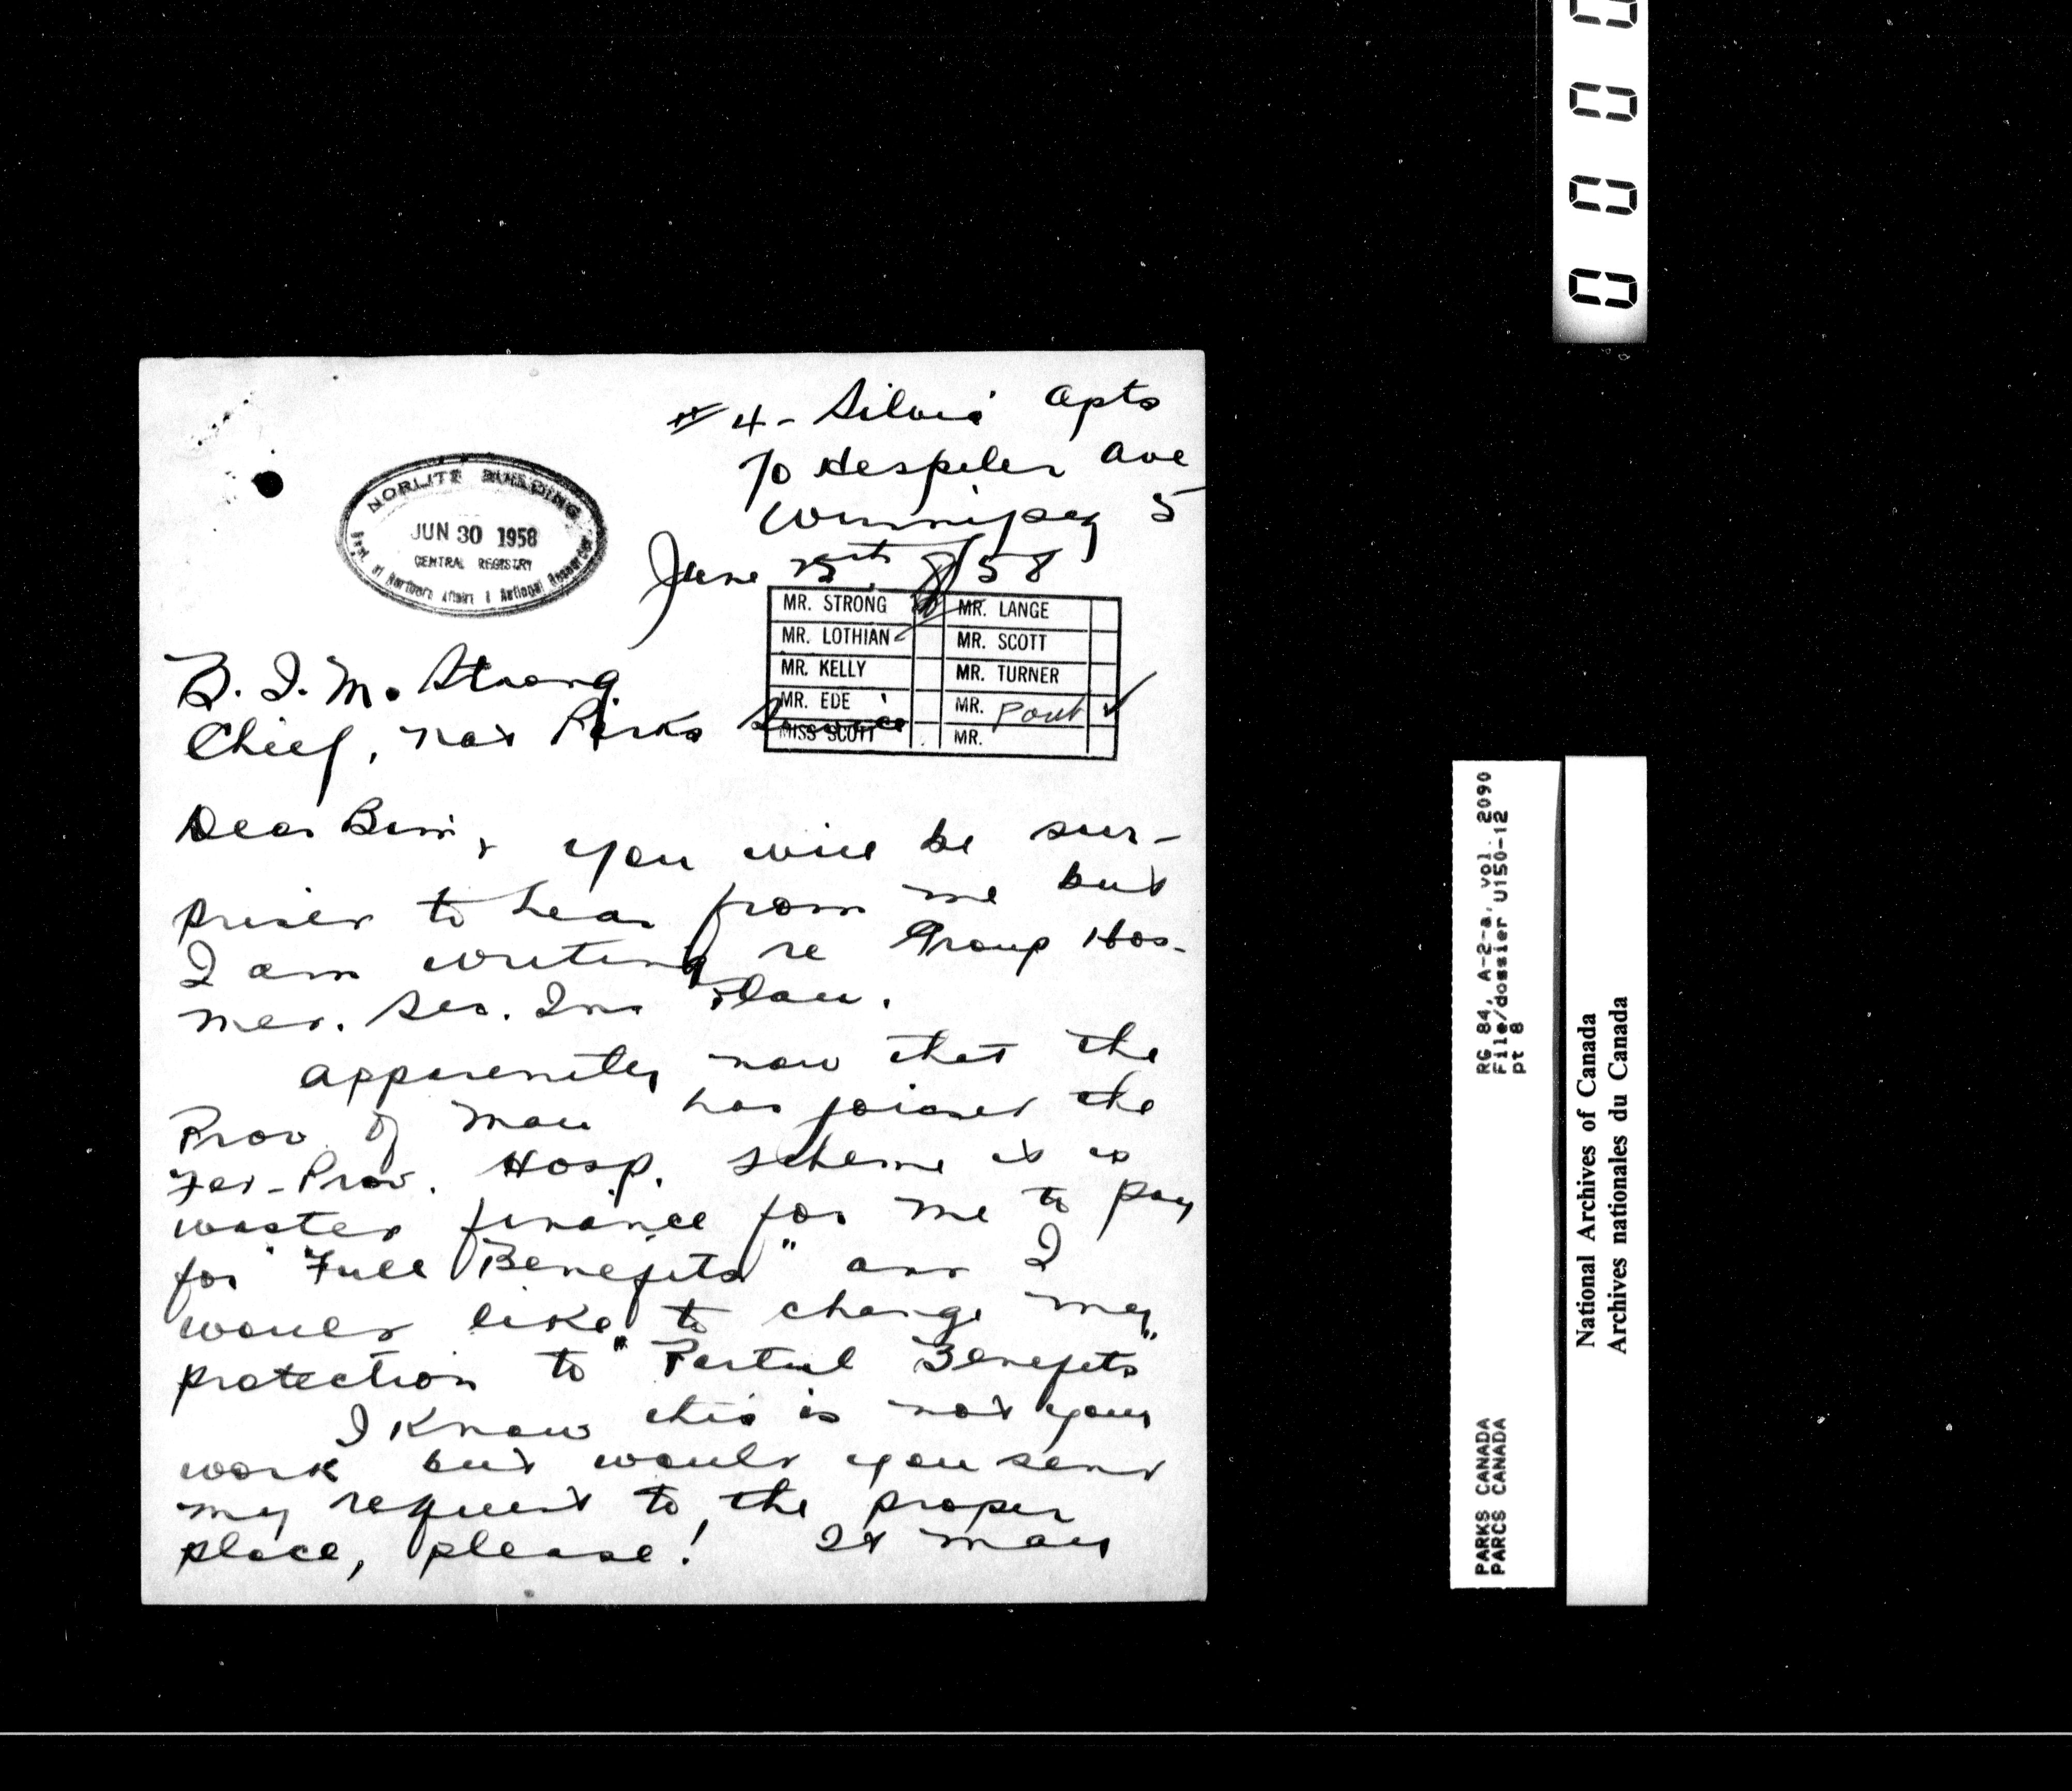 #4 - Silvia Apts
70 Hespeler Ave
Winnipeg 5
June 25th /58
NORLITE BUILDING
JUN 30 1958
CENTRAL REGISTRY
Dept. of Northern Affairs & National Resources
MR. STRONG MR. LANGE
MR. LOTHIAN MR. SCOTT
MR. KELLY MR. TURNER
MR. EDE MR.
MISS SCOTT MR.
B. I. M. Strong
Chief, Nat Parks Service
Dear Bim, you will be sur-
prised to hear from me but
I am writing re Group Hos-
Med. Ser. Ins Plan.
Apparently now that the
Prov. of Man has joined the
Fed-Prov. Hosp. scheme it is
wasted finance for me to pay
for "Full Benefits" and I
would like to change my
protection to "Partial Benefits"
I know this is not your
work but would you send
my request to the proper
place, please! It may
0 0 0 0
RG 84, A-2-a, vol. 2090
File/dossier U150-12
pt 8
PARKS CANADA
PARCS CANADA
National Archives of Canada
Archives nationales du Canada